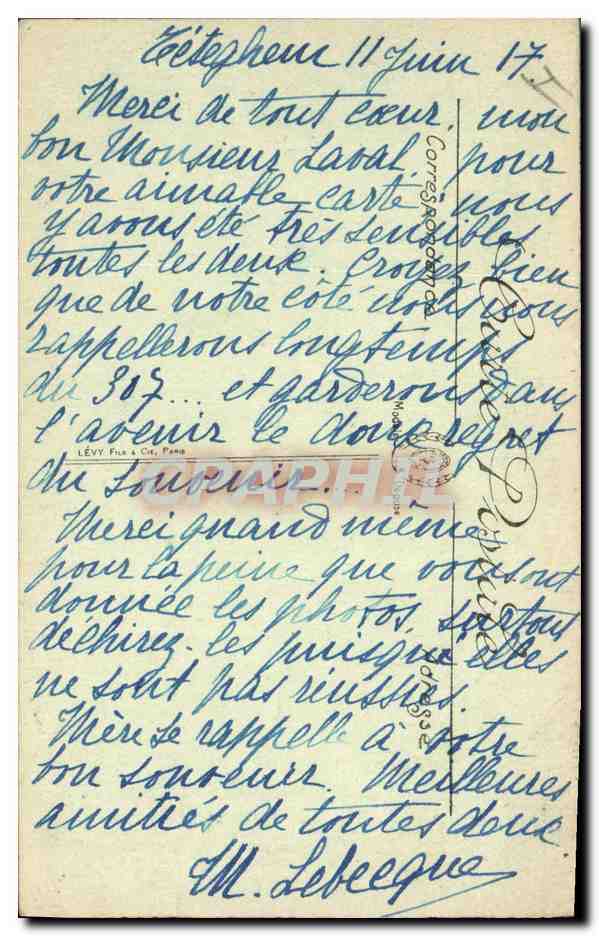 Téteghem 11 Juin 17
Merci de tout cœur, mon
bon Monsieur Laval, pour
votre aimable carte, nous
y avons été très sensibles
toutes les deux. Croyez bien
que de notre côté nous nous
rappellerons longtemps
du 307... et garderons dans
l'avenir le doux regret
du souvenir...
Merci quand même
pour la peine que vous ont
donnée les photos, surtout
déchirez-les puisqu'elles
ne sont pas réussies.
Mère se rappelle à votre
bon souvenir. Meilleures
amitiés de toutes deux
M. Lebecque
Carte Postale
Correspondance
Adresse
LÉVY Fils & Cie, Paris
CPAPHIL